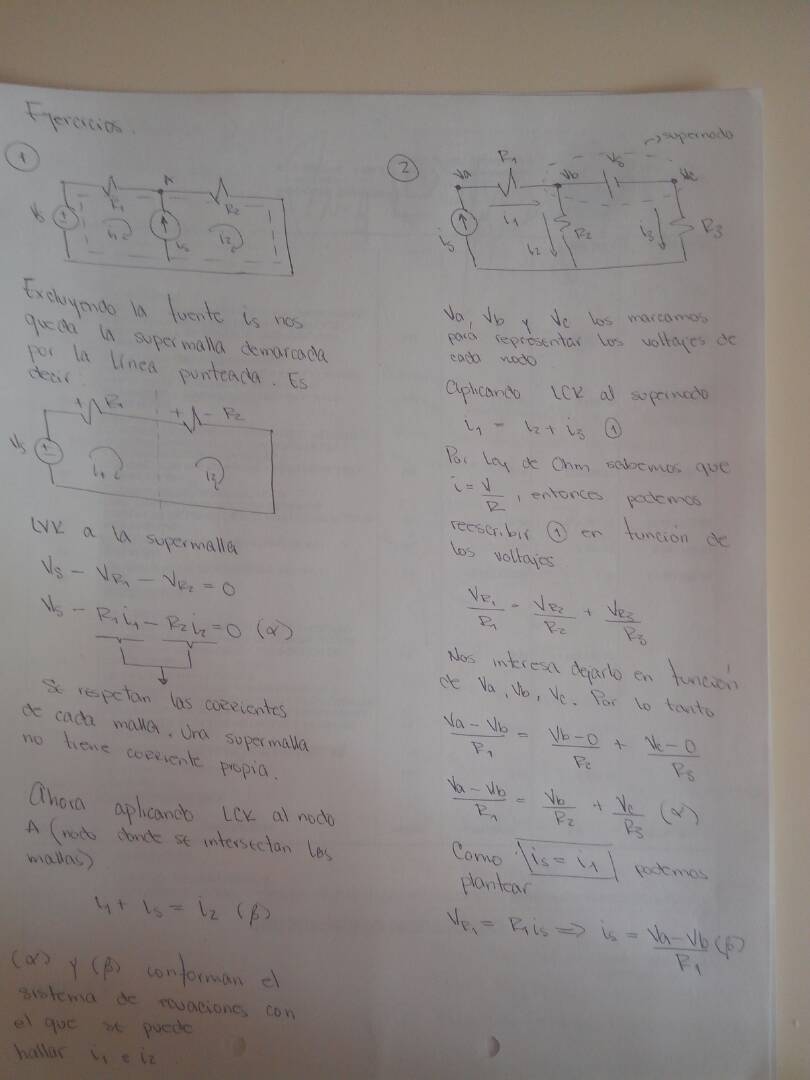 Ejercicios.
①
R1
A
R2
Vs
i1
is
i2
Excluyendo la fuente is nos
queda la supermalla demarcada
por la línea punteada. Es
decir
+ R1
+ - R2
Vs
i1
i2
LVK a la supermalla
Vs - VR1 - VR2 = 0
Vs - R1i1 - R2i2 = 0 (α)
Se respetan las corrientes
de cada malla. Una supermalla
no tiene corriente propia.
Ahora aplicando LCK al nodo
A (nodo donde se intersectan las
mallas)
i1 + is = i2 (β)
(α) y (β) conforman el
sistema de ecuaciones con
el que se puede
hallar i1 e i2
②
→ supernodo
Va
R1
Vb
Vs
Vc
is
i1
i2
R2
i3
R3
Va, Vb y Vc los marcamos
para representar los voltajes de
cada nodo
Aplicando LCK al supernodo
i1 = i2 + i3 ①
Por Ley de Ohm sabemos que
i = V/R, entonces podemos
reescribir ① en función de
los voltajes
VR1/R1 = VR2/R2 + VR3/R3
Nos interesa dejarlo en función
de Va, Vb, Vc. Por lo tanto
Va - Vb/R1 = Vb - 0/R2 + Vc - 0/R3
Va - Vb/R1 = Vb/R2 + Vc/R3 (α)
Como is = i1 podemos
plantear
VR1 = R1is => is = Va - Vb/R1 (β)